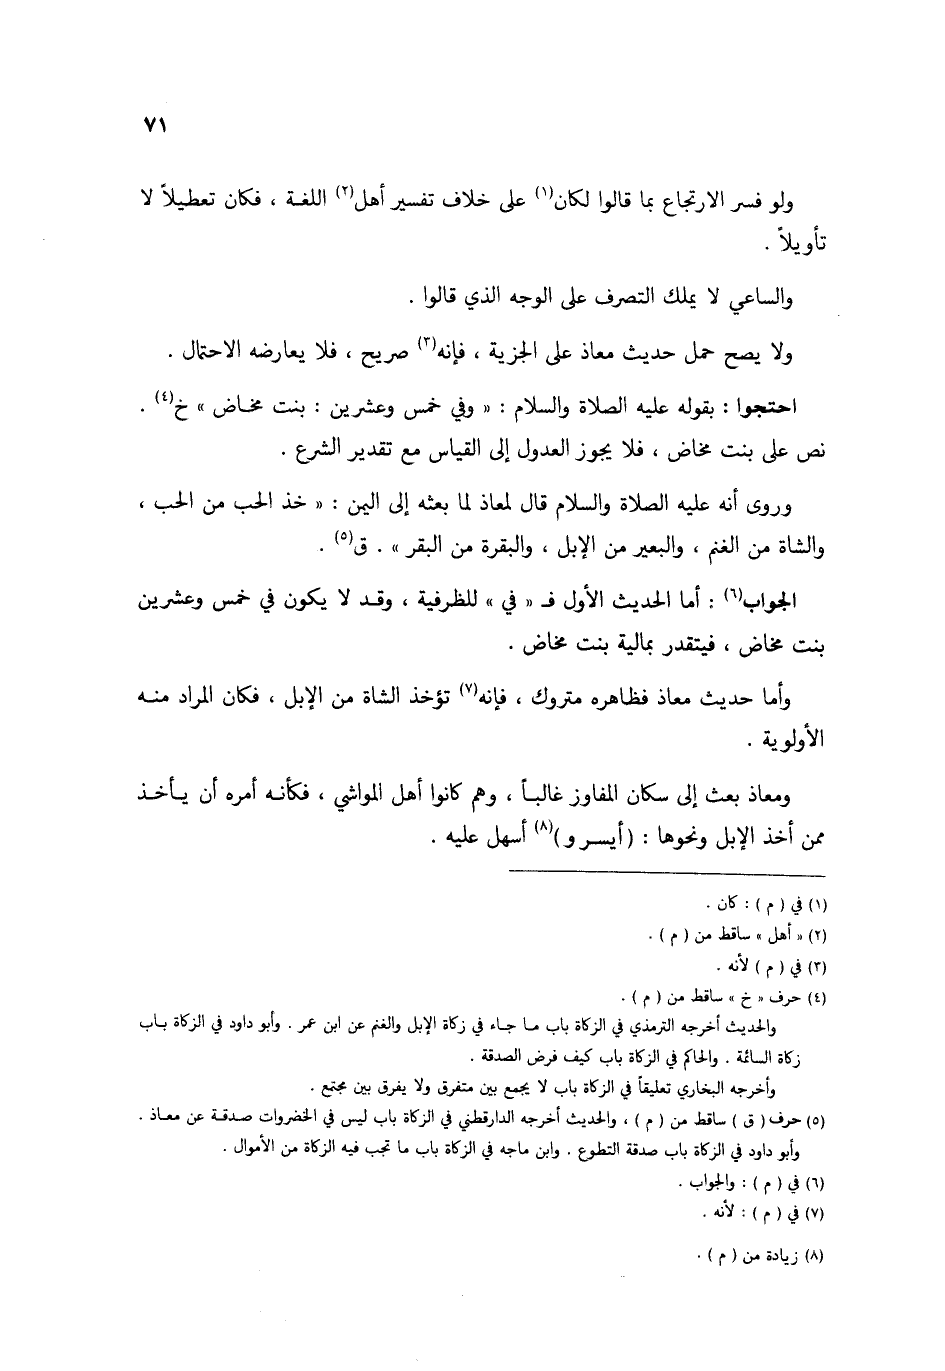 ٧١
ولو فسر الارتجاع بما قالوا لكان(١) على خلاف تفسير أهل(٢) اللغة ، فكان تعطيلاً لا
تأويلاً .
والساعي لا يملك التصرف على الوجه الذي قالوا .
ولا يصح حمل حديث معاذ على الجزية ، فإنه(٣) صريح ، فلا يعارضه الاحتمال .
احتجوا : بقوله عليه الصلاة والسلام : « وفي خمس وعشرين : بنت مخاض » خ(٤) .
نص على بنت مخاض ، فلا يجوز العدول إلى القياس مع تقدير الشرع .
وروى أنه عليه الصلاة والسلام قال لمعاذ لما بعثه إلى اليمن : « خذ الحب من الحب ،
والشاة من الغنم ، والبعير من الإبل ، والبقرة من البقر » . ق(٥) .
الجواب(٦) : أما الحديث الأول فـ « في » للظرفية ، وقد لا يكون في خمس وعشرين
بنت مخاض ، فيتقدر بمالية بنت مخاض .
وأما حديث معاذ فظاهره متروك ، فإنه(٧) تؤخذ الشاة من الإبل ، فكان المراد منه
الأولوية .
ومعاذ بعث إلى سكان المفاوز غالباً ، وهم كانوا أهل المواشي ، فكأنه أمره أن يأخذ
ممن أخذ الإبل ونحوها : (أيسر و)(٨) أسهل عليه .
(١) في ( م ) : كان .
(٢) « أهل » ساقط من ( م ) .
(٣) في ( م ) لأنه .
(٤) حرف « خ » ساقط من ( م ) .
والحديث أخرجه الترمذي في الزكاة باب ما جاء في زكاة الإبل والغنم عن ابن عمر . وأبو داود في الزكاة باب
زكاة السائمة . والحاكم في الزكاة باب كيف فرض الصدقة .
وأخرجه البخاري تعليقاً في الزكاة باب لا يجمع بين متفرق ولا يفرق بين مجتمع .
(٥) حرف ( ق ) ساقط من ( م ) ، والحديث أخرجه الدارقطني في الزكاة باب ليس في الخضروات صدقة عن معاذ .
وأبو داود في الزكاة باب صدقة التطوع . وابن ماجه في الزكاة باب ما تجب فيه الزكاة من الأموال .
(٦) في ( م ) : والجواب .
(٧) في ( م ) : لأنه .
(٨) زيادة من ( م ) .